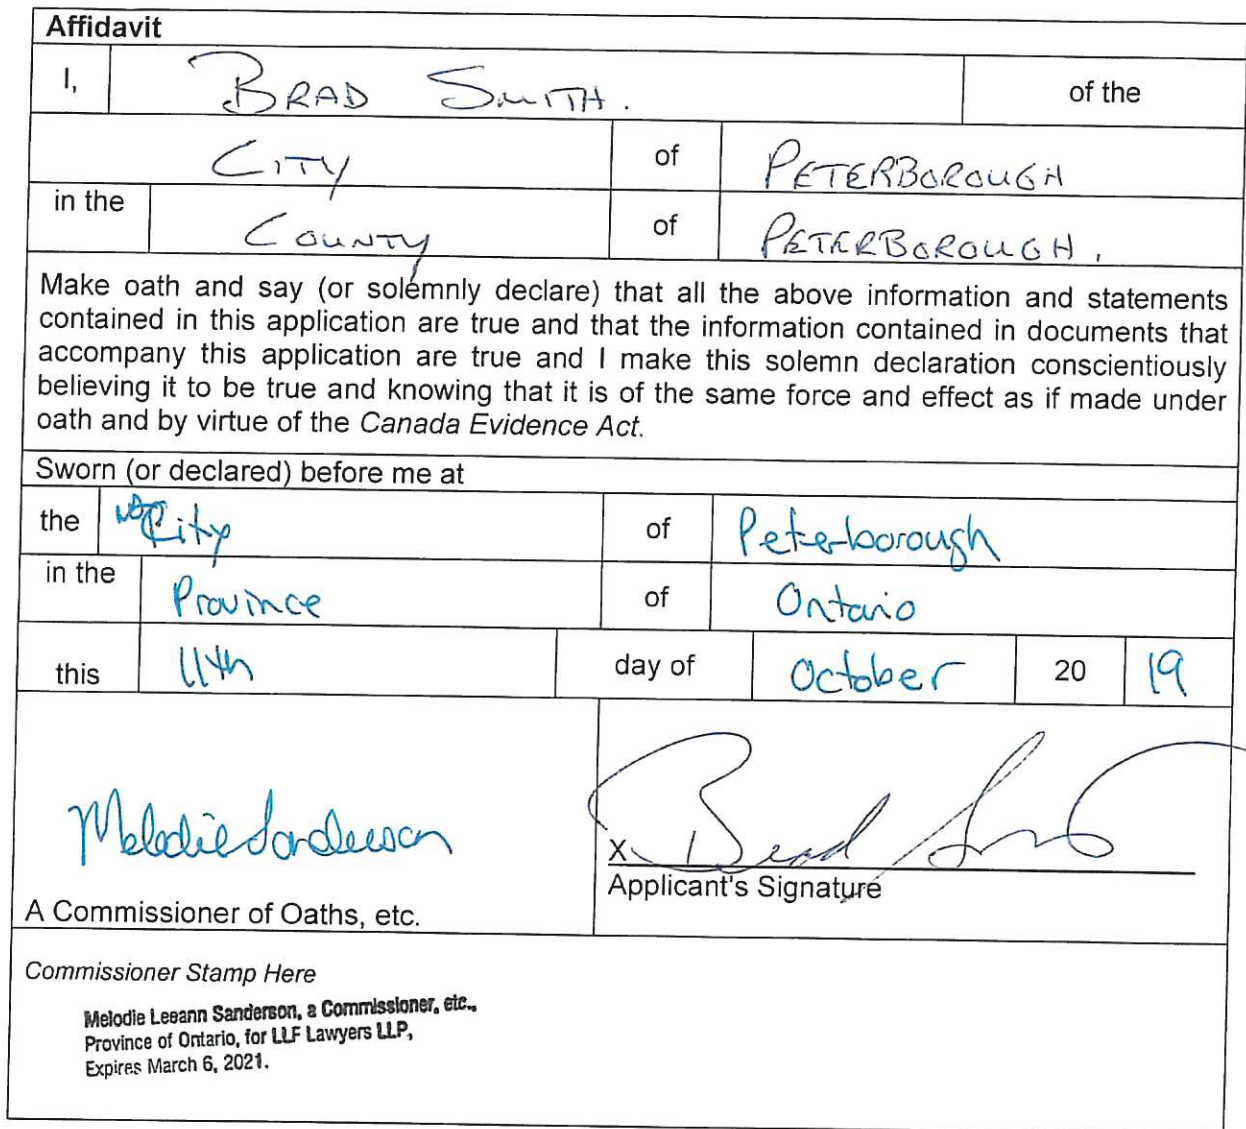 Affidavit
I, BRAD SMITH. of the
CITY of PETERBOROUGH
in the COUNTY of PETERBOROUGH.
Make oath and say (or solemnly declare) that all the above information and statements
contained in this application are true and that the information contained in documents that
accompany this application are true and I make this solemn declaration conscientiously
believing it to be true and knowing that it is of the same force and effect as if made under
oath and by virtue of the Canada Evidence Act.
Sworn (or declared) before me at
the City of Peterborough
in the Province of Ontario
this 11th day of October 20 19
Melodie Sanderson
X Brad
A Commissioner of Oaths, etc.
Applicant's Signature
Commissioner Stamp Here
Melodie Leeann Sanderson, a Commissioner, etc.,
Province of Ontario, for LLF Lawyers LLP,
Expires March 6, 2021.